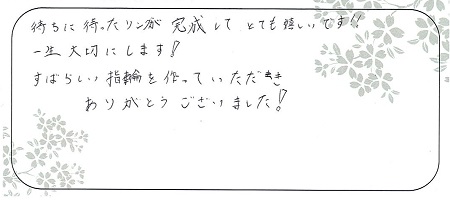 待ちに待ったリングが完成して とても嬉しいです!!
一生大切にします!
すばらしい指輪を作っていただき
ありがとうございました!